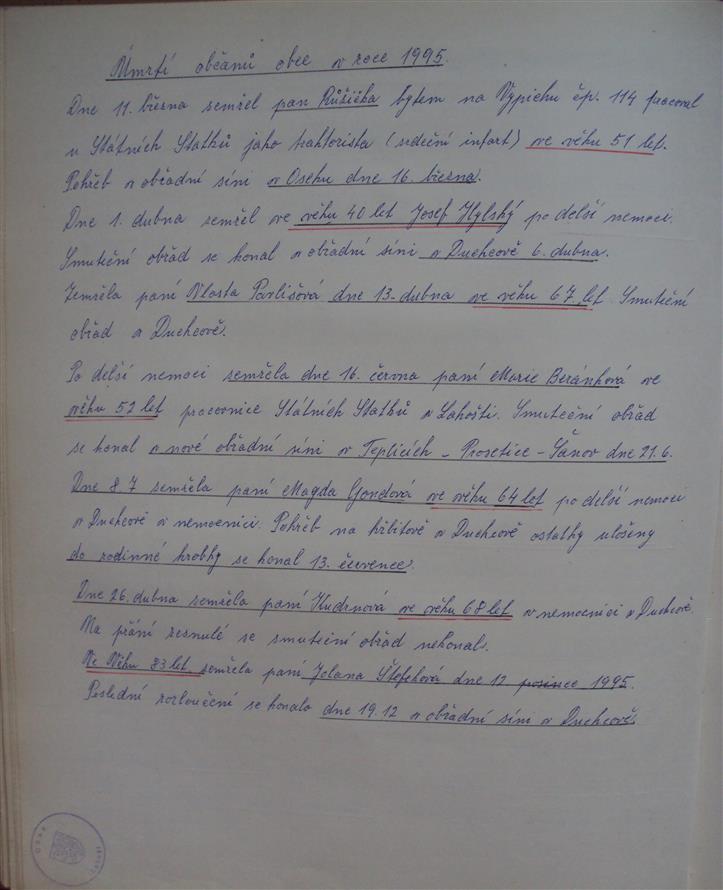 Úmrtí občanů obce v roce 1995.
Dne 11. března zemřel pan Růžička bytem na Výpichu čp. 114 pracoval
u Státních Statků jako traktorista (srdeční infart) ve věku 51 let.
Pohřeb v obřadní síni v Oseku dne 16. března.
Dne 1. dubna zemřel ve věku 40 let Josef Hylský po delší nemoci.
Smuteční obřad se konal v obřadní síni v Duchcově 6. dubna.
Zemřela paní Vlasta Pavlišová dne 13. dubna ve věku 67 let. Smuteční
obřad v Duchcově.
Po delší nemoci zemřela dne 16. června paní Marie Beránková ve
věku 52 let pracovnice Státních Statků v Lahošti. Smuteční obřad
se konal v nové obřadní síni v Teplicích - Prosetice - Šanov dne 21.6.
Dne 8.7 zemřela paní Magda Gondová ve věku 64 let po delší nemoci
v Duchcově v nemocnici. Pohřeb na hřbitově v Duchcově ostatky uloženy
do rodinné hrobky se konal 13. července.
Dne 26. dubna zemřela paní Kudrnová ve věku 68 let v nemocnici v Duchcově
Na přání zesnulé se smuteční obřad nekonal.
Ve Věku 83 let zemřela paní Jolana Štefeková dne 12 prosince 1995.
Poslední rozloučení se konalo dne 19.12 v obřadní síni v Duchcově.